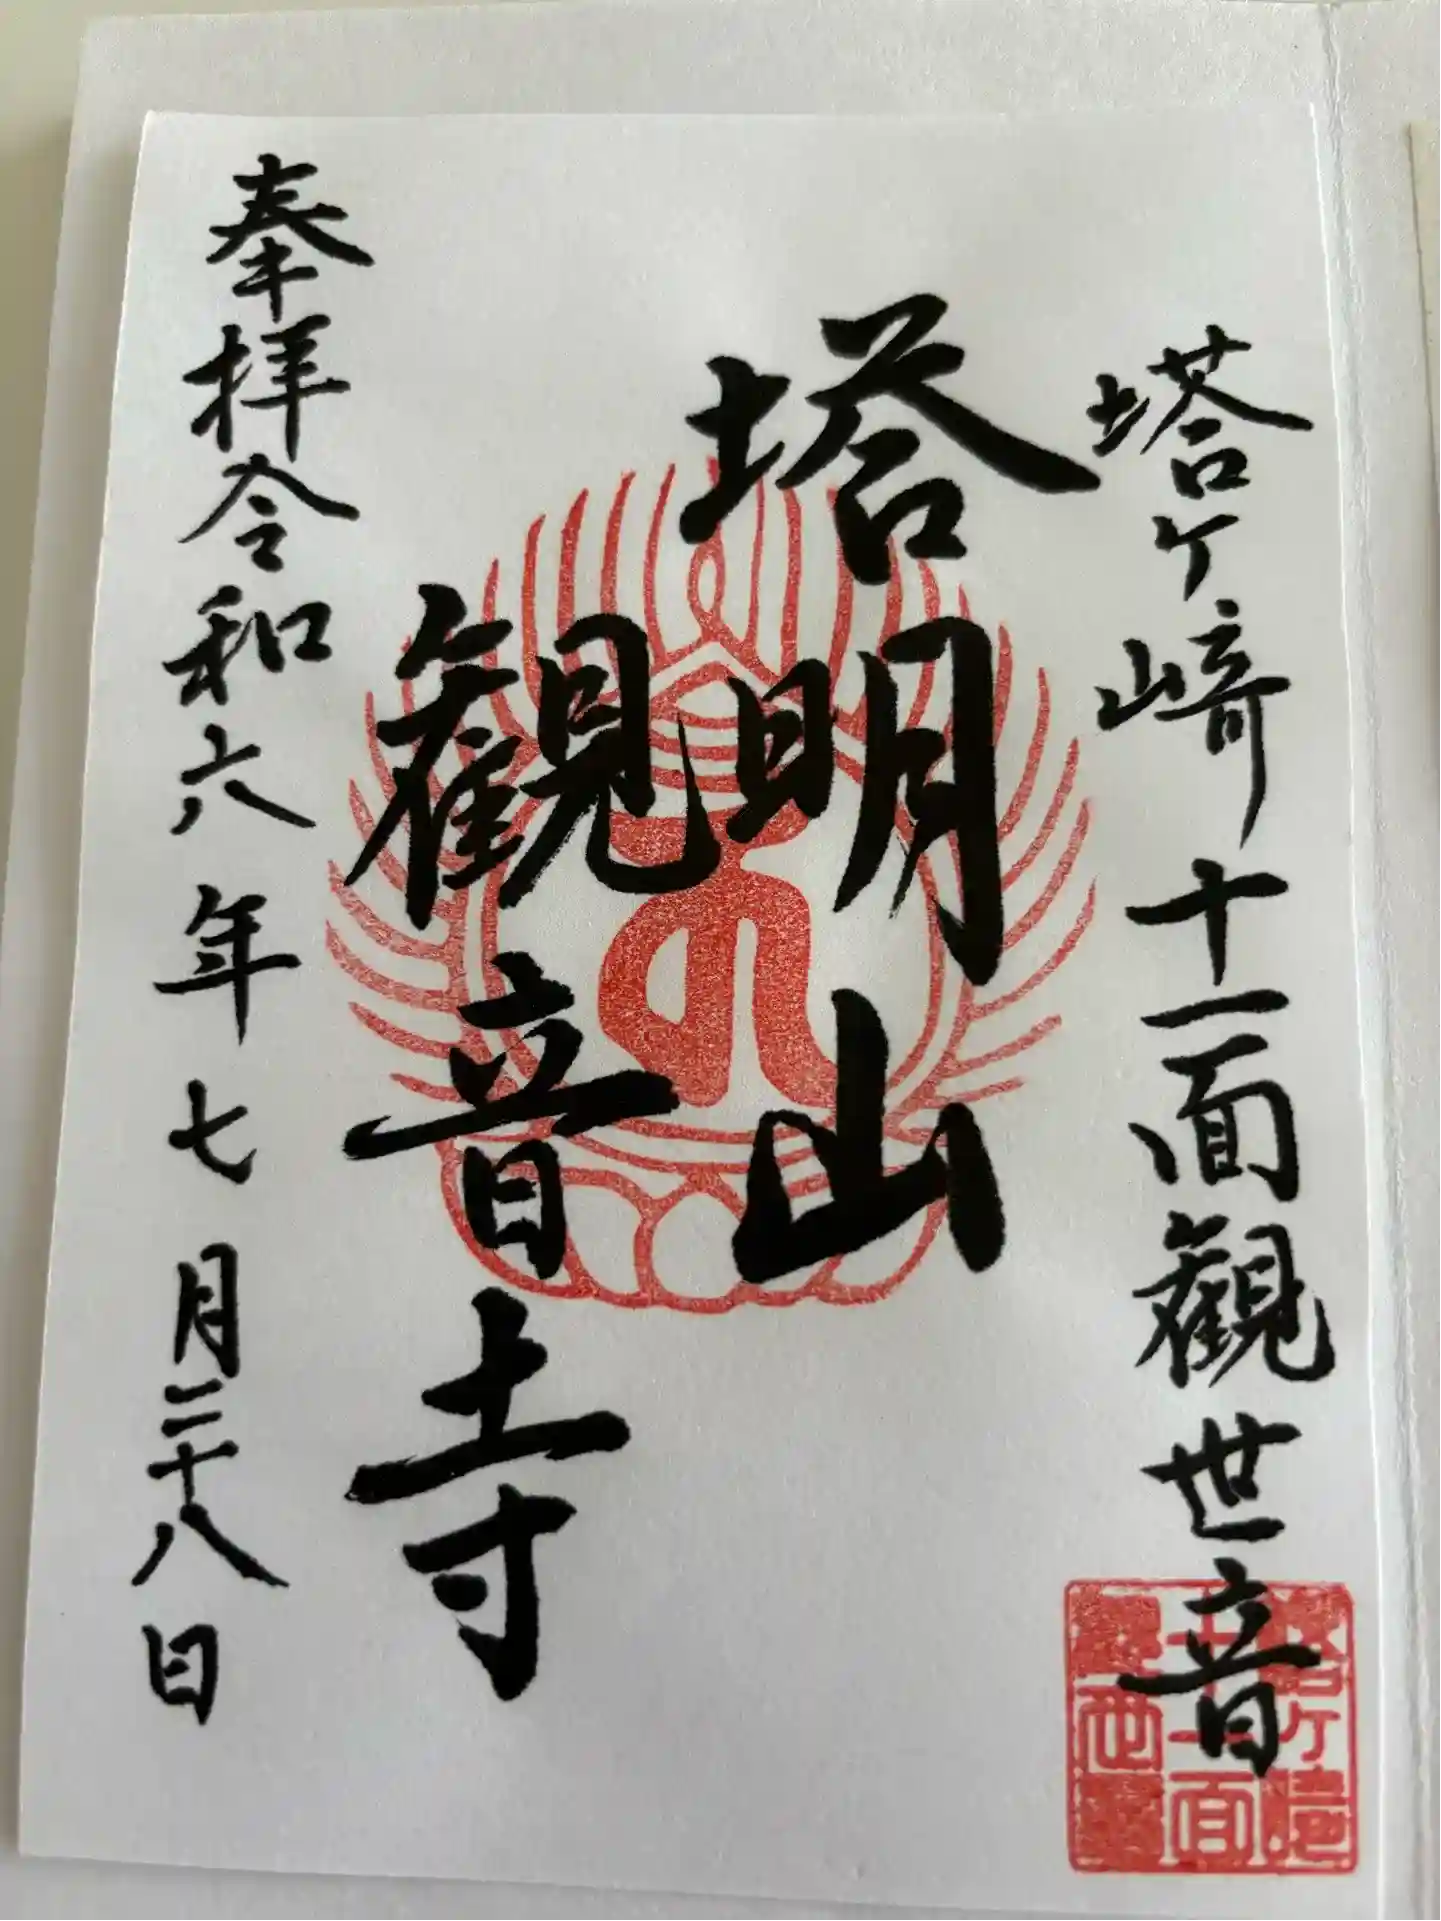 塔ヶ﨑十一面観世音
塔明山
観音寺
奉拝令和六年七月二十八日
塔ヶ﨑
十一面